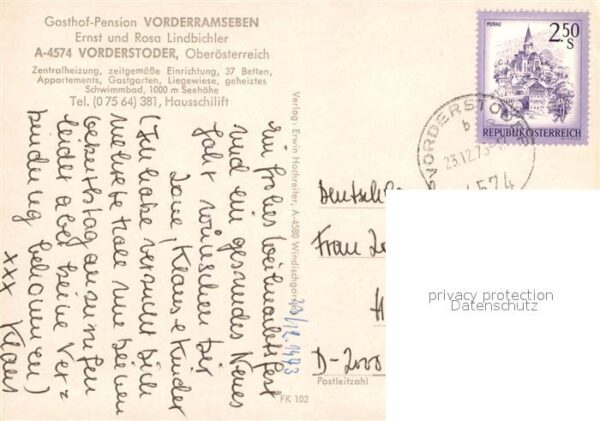 Gasthof-Pension VORDERRAMSEBEN
Ernst und Rosa Lindbichler
A-4574 VORDERSTODER, Oberösterreich
Zentralheizung, zeitgemäße Einrichtung, 37 Betten,
Appartements, Gastgarten, Liegewiese, geheiztes
Schwimmbad, 1000 m Seehöhe
Tel. (0 75 64) 381, Hausschilift
Ein frohes Weihnachtsfest
und ein gesundes Neues
Jahr wünschen Dir
Klaus & Kinder
(Ich habe versucht Dich
mehrere Male an deinem
Geburtstag anzurufen
leider aber keine Ver=
bindung bekommen)
xxx Klaus
23/12.1973
Verlag: Erwin Hochreiter, A-4580 Windischgarsten
FK 102
MURAU
2.50
S
REPUBLIK ÖSTERREICH
VORDERSTODER
b
23.12.73
4574
Deutschl
Frau
H
D-2000
Postleitzahl
privacy protection
Datenschutz